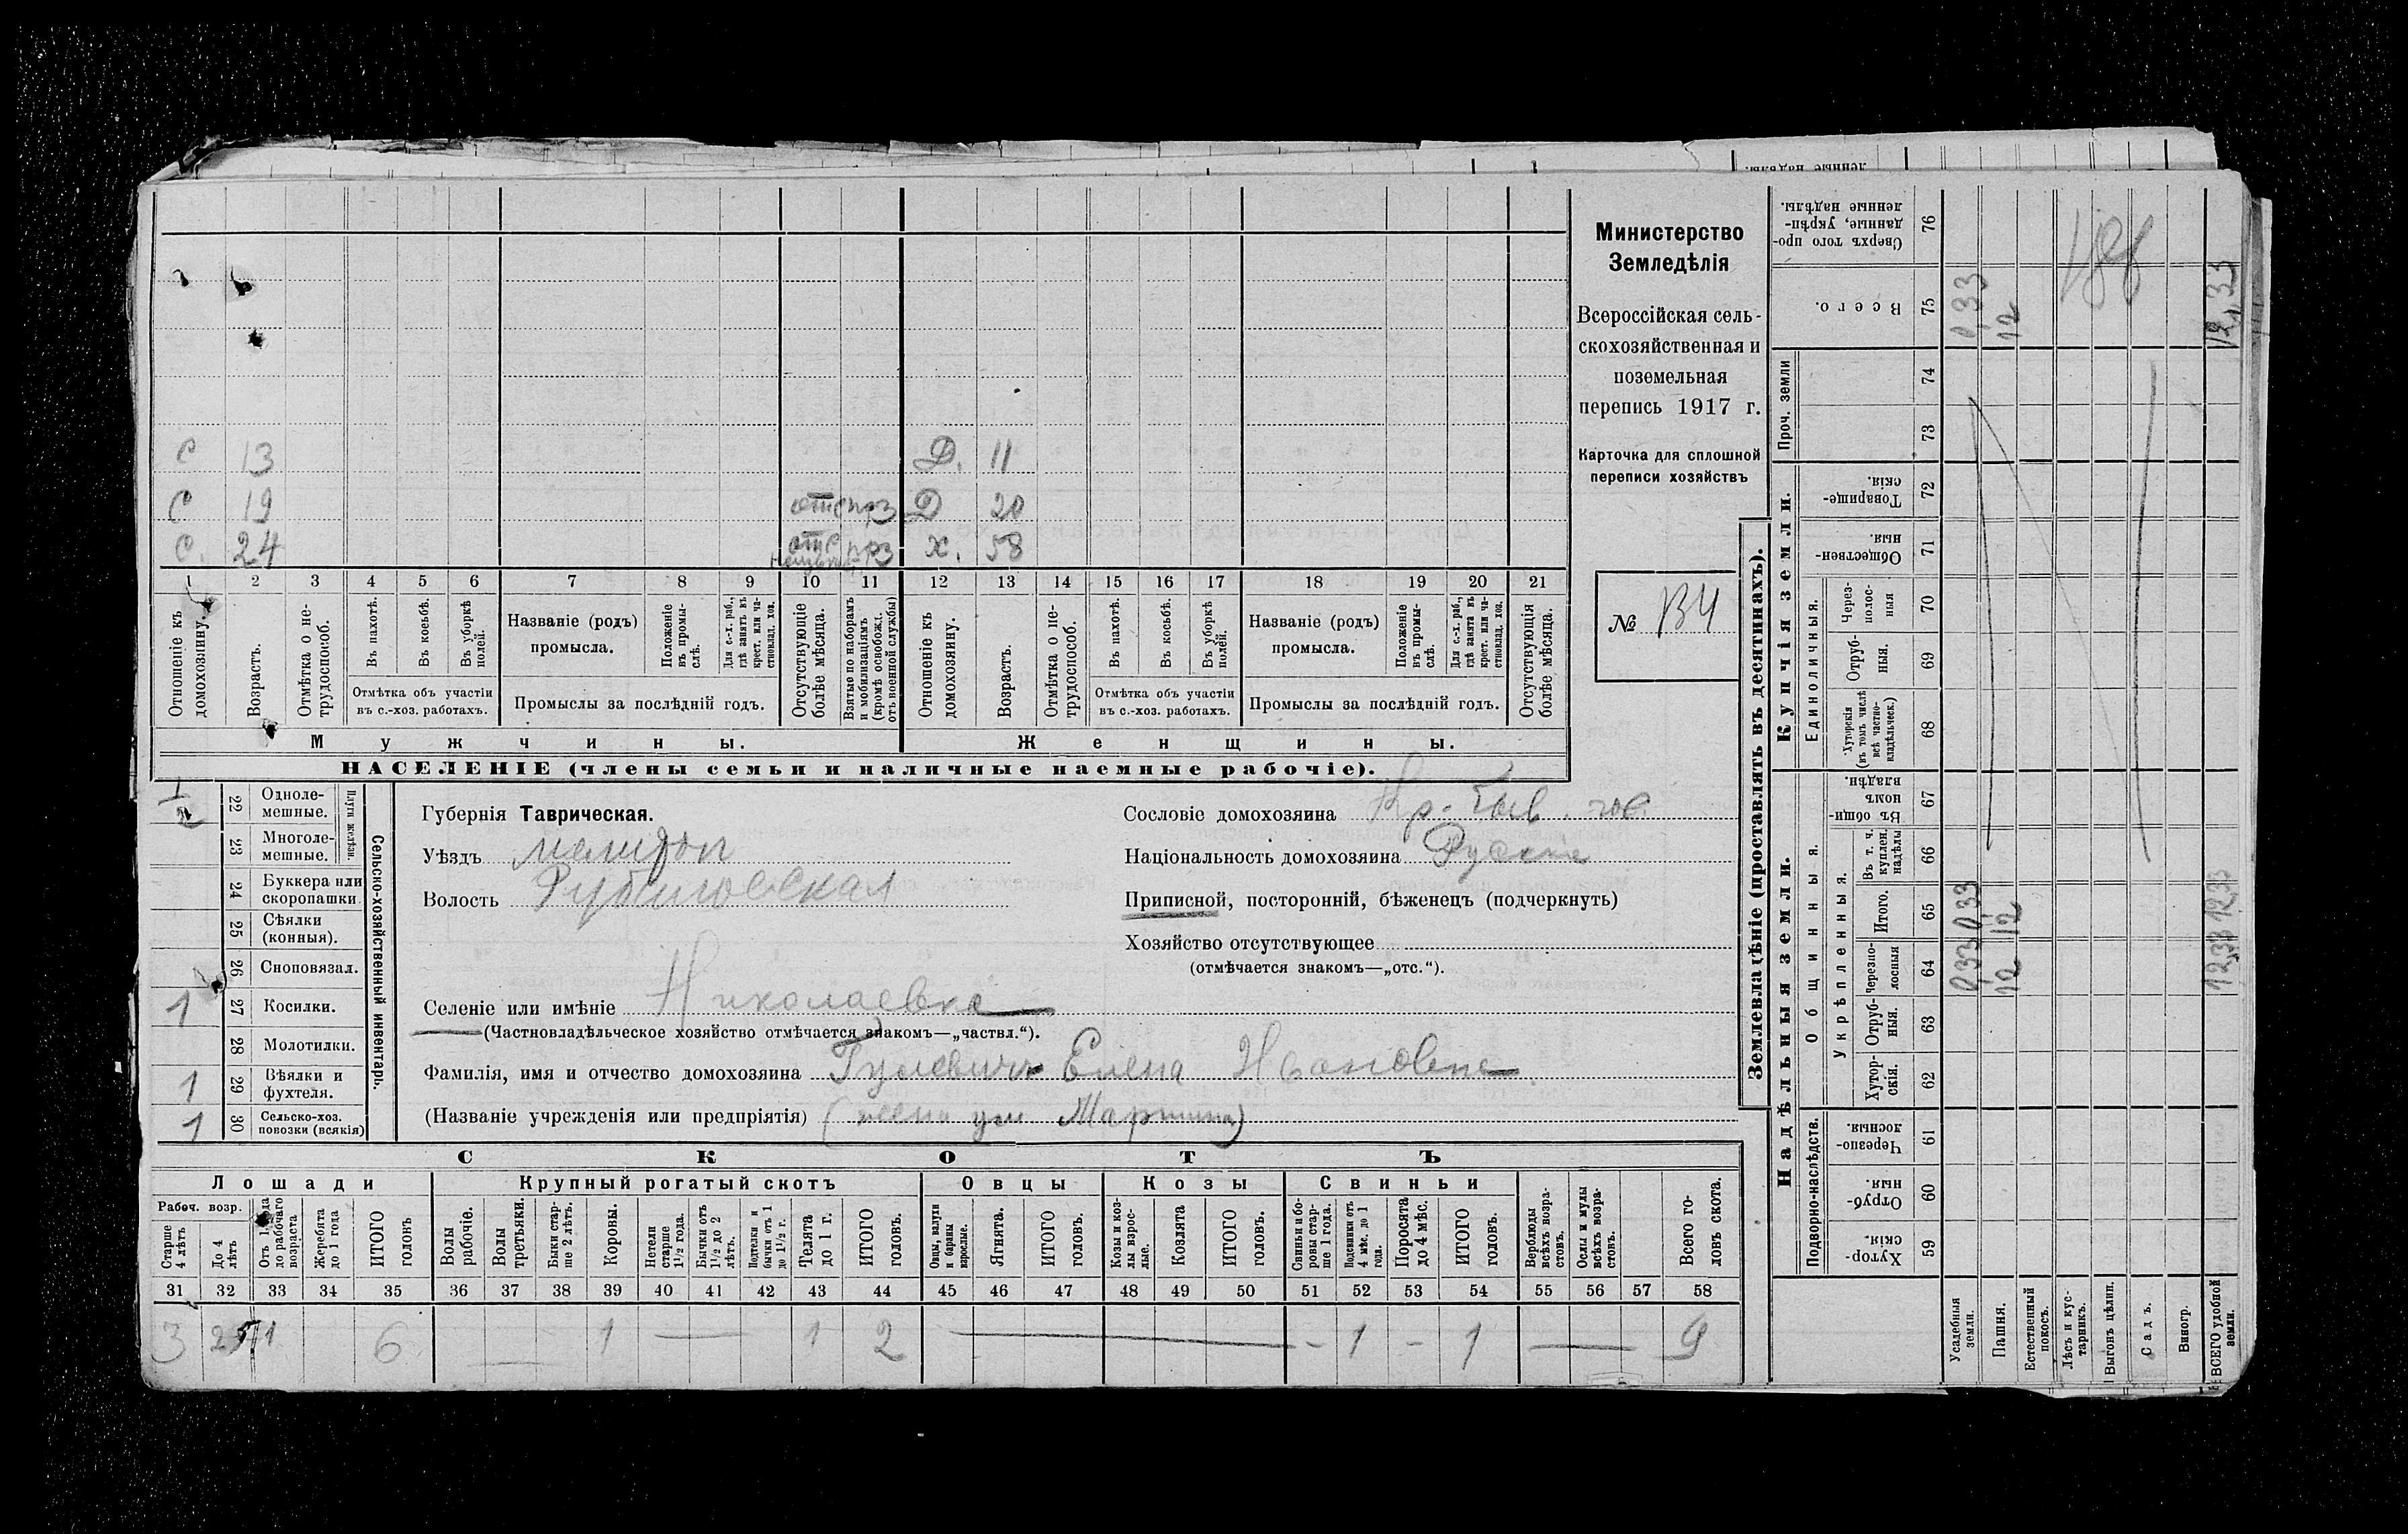 ленные надѣлы.
С 13 Д. 11
С 19 отс прз Д 20
С. 24 отс прз Х. 58
1 2 3 4 5 6 7 8 9 10 11 12 13 14 15 16 17 18 19 20 21
Отношеніе къ домохозяину.
Возрастъ.
Отмѣтка о нетрудоспособ.
Въ пахотѣ.
Въ косьбѣ.
Въ уборкѣ полей.
Отмѣтка объ участіи
въ с.-хоз. работахъ.
Названіе (родъ)
промысла.
Положеніе въ промыслѣ.
Для с.-х. раб., гдѣ занятъ въ крест. или частновлад. хоз.
Промыслы за послѣдній годъ.
Отсутствующіе болѣе мѣсяца.
Взятые по наборамъ и мобилизаціямъ (кромѣ освобожд. отъ военной службы)
Отношеніе къ домохозяину.
Возрастъ.
Отмѣтка о нетрудоспособ.
Въ пахотѣ.
Въ косьбѣ.
Въ уборкѣ полей.
Отмѣтка объ участіи
въ с.-хоз. работахъ.
Названіе (родъ)
промысла.
Положеніе въ промыслѣ.
Для с.-х. раб., гдѣ занята въ крест. или частновлад. хоз.
Промыслы за послѣдній годъ.
Отсутствующія болѣе мѣсяца.
Мужчины. Женщины.
НАСЕЛЕНІЕ (члены семьи и наличные наемные рабочіе).
Министерство
Земледѣлія
Всероссійская сель-
скохозяйственная и
поземельная
перепись 1917 г.
Карточка для сплошной
переписи хозяйствъ
№ 134
Сельско-хозяйственный инвентарь.
Плуги желѣзн.
22 Однолемешные.
23 Многолемешные.
24 Буккера или скоропашки
25 Сѣялки (конныя).
26 Сноповязал.
1 27 Косилки.
28 Молотилки.
1 29 Вѣялки и фухтеля.
1 30 Сельско-хоз. повозки (всякія)
Губернія Таврическая.
Уѣздъ Мелитоп
Волость
Селеніе или имѣніе Николаевка
(Частновладѣльческое хозяйство отмѣчается знакомъ—„частвл.“).
Фамилія, имя и отчество домохозяина Гулевичъ Елена Ивановна
(Названіе учрежденія или предпріятія) (жена ум Мартина)
Сословіе домохозяина Кр. быв. гос.
Національность домохозяина Русскіе
Приписной, посторонній, бѣженецъ (подчеркнуть)
Хозяйство отсутствующее
(отмѣчается знакомъ—„отс.“).
СКОТЪ
Лошади Крупный рогатый скотъ Овцы Козы Свиньи
Рабоч. возр.
Старше 4 лѣтъ
До 4 лѣтъ
Отъ 1 года до рабочаго возраста
Жеребята до 1 года
ИТОГО головъ
Волы рабочіе.
Волы третьяки.
Быки старше 2 лѣтъ.
Коровы.
Нетели старше 1½ года.
Бычки отъ 1½ до 2 лѣтъ.
Подтелки и бычки отъ 1 до 1½ г.
Телята до 1 г.
ИТОГО головъ.
Овцы, валухи и бараны взрослые.
Ягнята.
ИТОГО головъ.
Козы и козлы взрослые.
Козлята
ИТОГО головъ.
Свиньи и боровы старше 1 года.
Подсвинки отъ 4 мѣс. до 1 года.
Поросята до 4 мѣс.
ИТОГО головъ.
Верблюды всѣхъ возрастовъ.
Ослы и мулы всѣхъ возрастовъ.
Всего головъ скота.
31 32 33 34 35 36 37 38 39 40 41 42 43 44 45 46 47 48 49 50 51 52 53 54 55 56 57 58
3 2 1 6 — 1 — 1 2 — – 1 – 1 — 9
Землевладѣніе (проставлять въ десятинахъ).
Надѣльныя земли. Купчія земли. Проч. земли
Подворно-наслѣдств. Общинныя. Единоличныя.
Укрѣпленныя.
Хуторскія. 59
Отрубныя. 60
Черезполосныя. 61
Хуторскія. 62
Отрубныя. 63
Черезполосныя 64
Итого. 65
Въ т. ч. куплен. надѣлы 66
Въ общинномъ владѣн. 67
Хуторскія (въ томъ числѣ всѣ частновладѣльческ.) 68
Отрубныя. 69
Черезполосныя 70
Общественныя. 71
Товарищескія. 72
73
74
Всего. 75
Сверхъ того проданные, укрѣпленные надѣлы. 76
Усадебныя земли. 0,33 0,33 0,33
Пашня. 12 12 12
Естественный покосъ.
Лѣсъ и кустарникъ.
Выгонъ цѣлин.
Садъ.
Виногр.
ВСЕГО удобной земли. 12,33 12,33 12,33